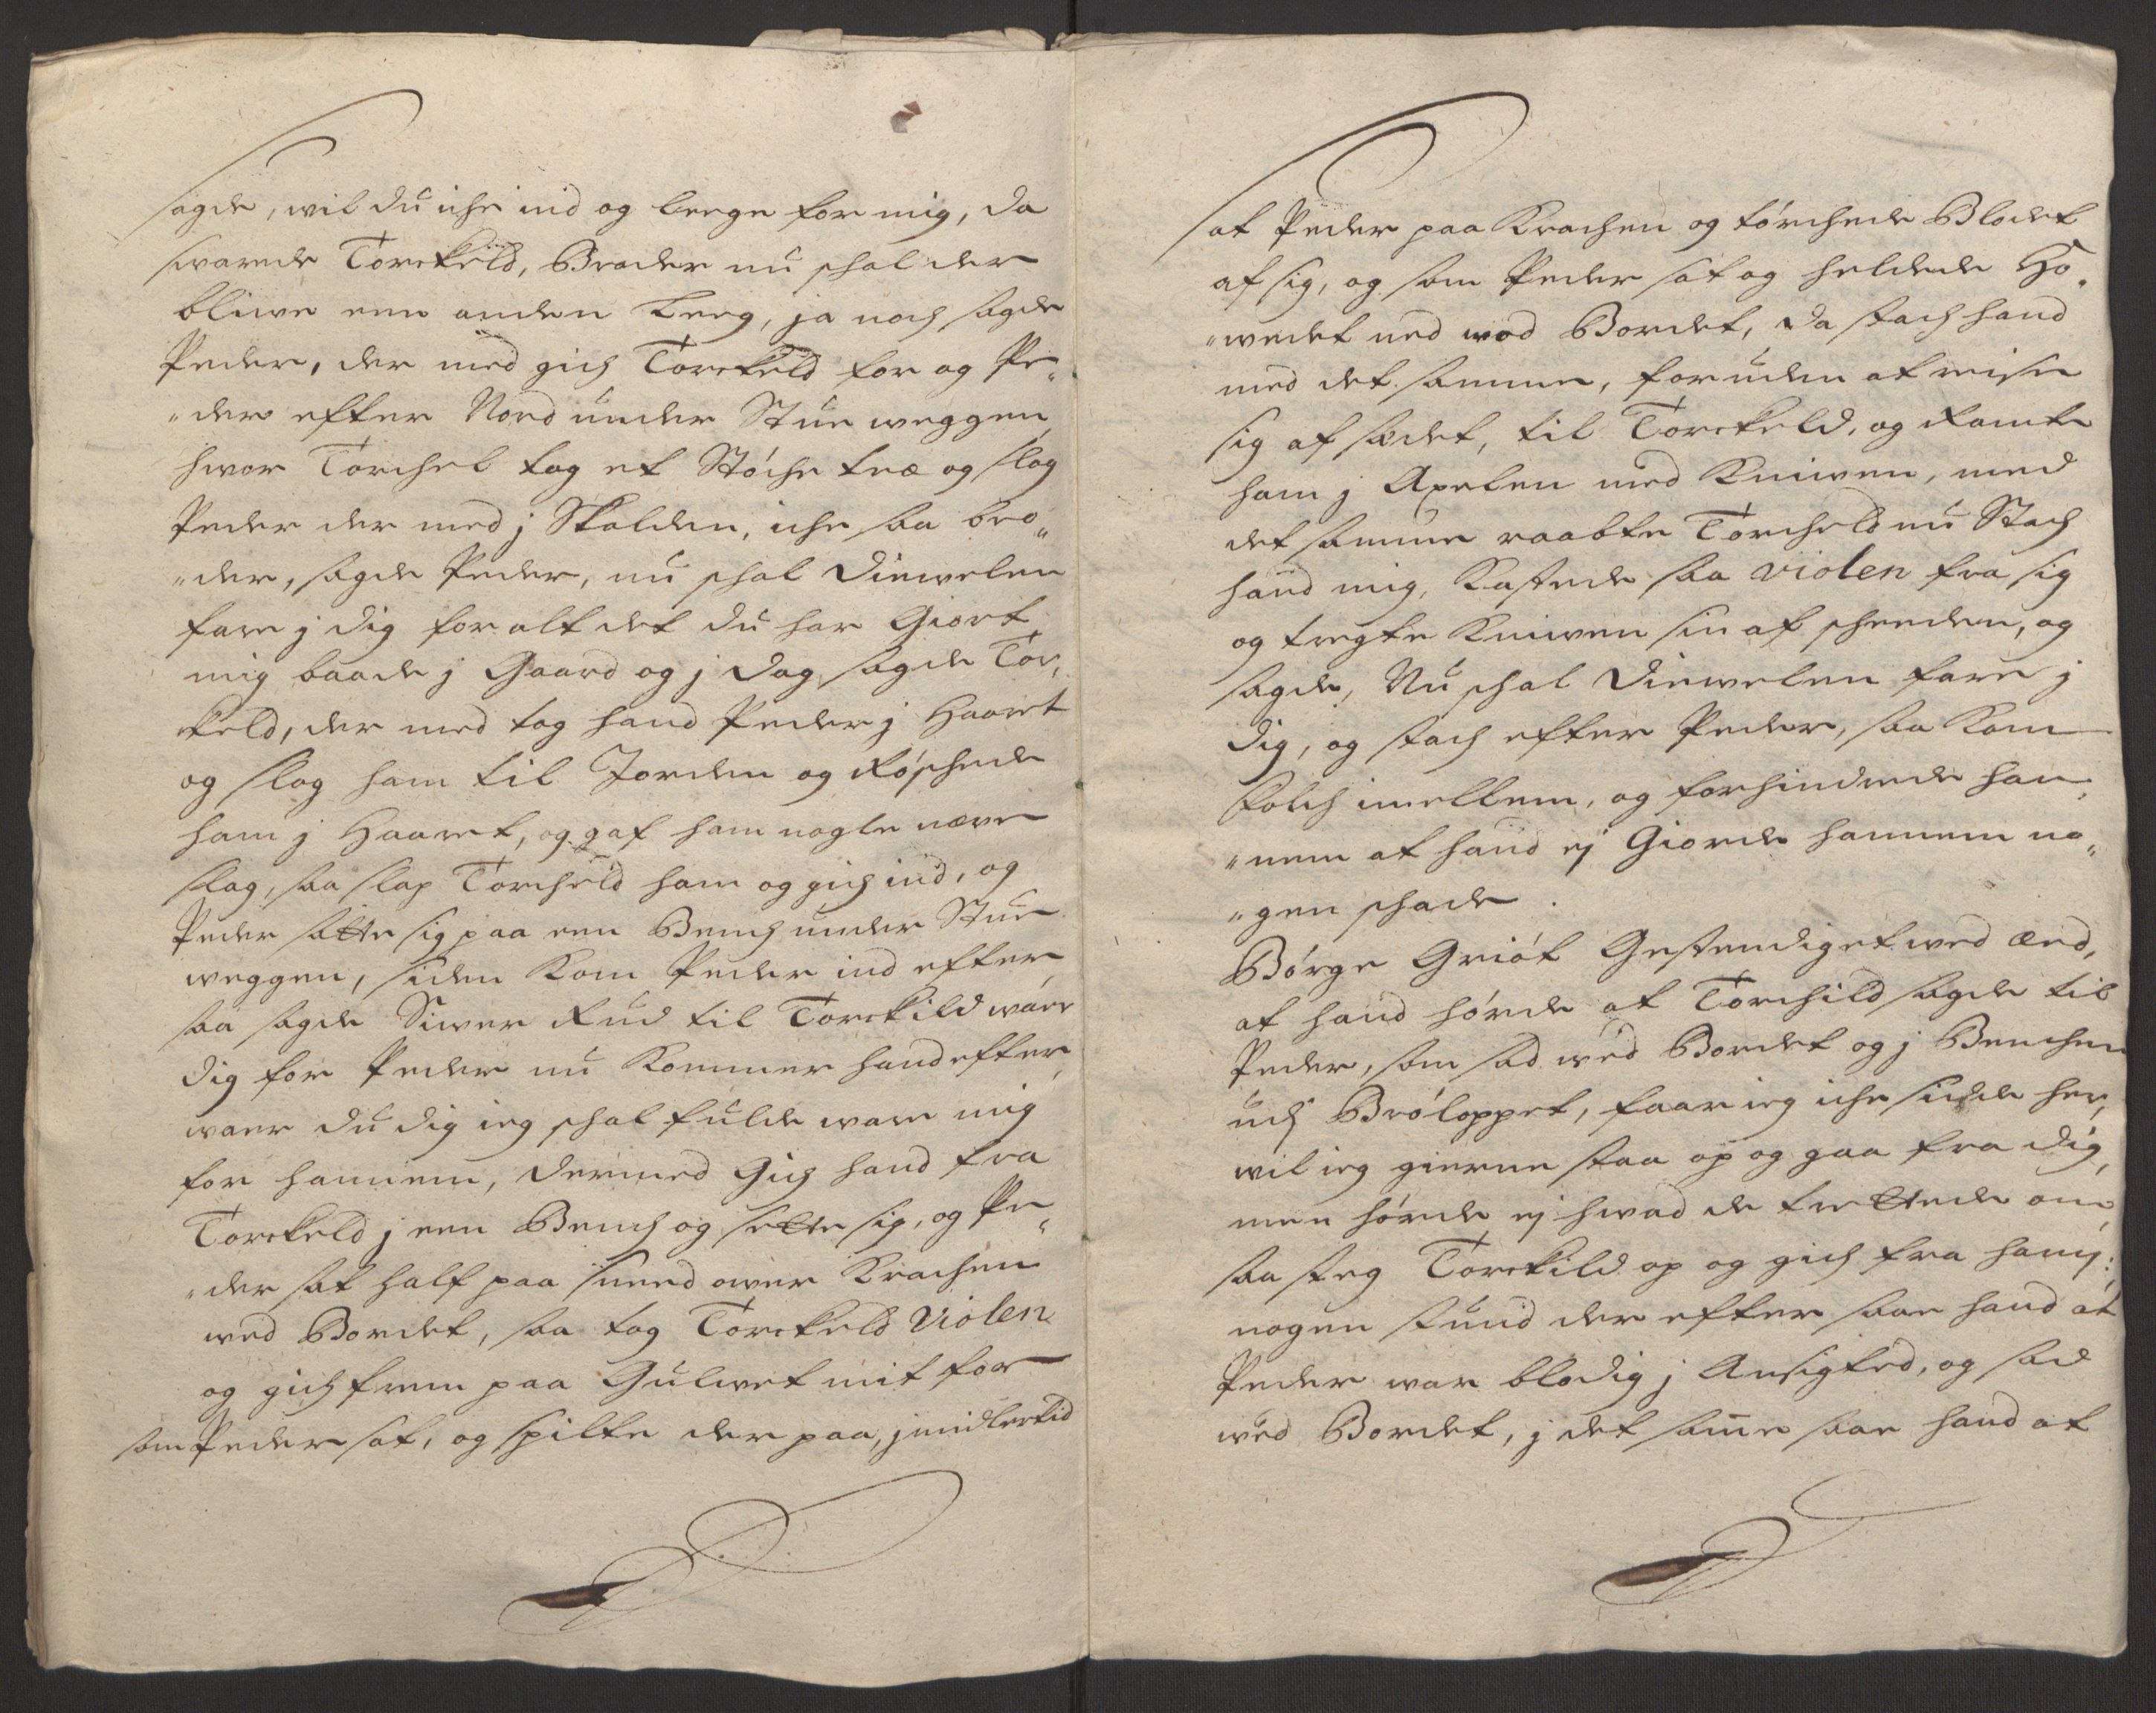 sagde, wil du iche ind og leege for mig, da
swarede Torckeld, Broder nu schal der
bliwe een anden Leeg, ja noch sagde
Peder, der med gich Torckeld for og Pe„
„der efter Nord under Stue weggen,
hwor Torchel tog et Støche træ og slog
Peder der med j Skolden, iche saa bro„
„der, sagde Peder, nu schal Diewelen
fare j dig for alt det du har Giort
mig baade j Gaard og j Dag, sagde Tor„
ckeld, der med tog hand Peder j Haaret
og slog ham til Jorden og Røschede
ham j Haaret, og gaf ham nogle næwe
slag, saa slap Torcheld ham og gich ind, og
Peder sætte sig paa een Bench under Stue
weggen, siden Kom Peder ind efter,
saa sagde Siwer Rud til Torckild waer
dig for Peder nu Kommer hand efter,
waer du dig ieg schal fulde ware mig
for hannem, dermed Gich hand fra
Torckeld j een Bench og sette sig, og Pe„
„der sat half paa sned ower Krachen
wed Bordet, saa tog Torckeld violen
og gich frem paa Gulwet mit for
som Peder sat, og spilte der paa, jmidlertid
sat Peder paa Krachen og tørchede Blodet
af sig, og som Peder sat og heldede Ho„
„wedet ned wed Bordet, da stach hand
med det samme, foruden at reise
sig af sædet, til Torckeld, og Ramte
ham j Axelen med Kniwen, med
det samme raabte Torcheld nu Stach
hand mig, Kastede saa violen fra sig
og tregte Kniwen sin af scheeden, og
sagde, Nu schal Diewelen fare j
dig, og stach efter Peder, saa Kom
folch imellem, og forhindrede han„
„nem at hand ej Giorde hannem no„
„gen schade.
Børge Griøt Gestendiget wed æed,
at hand hørde at Torchild sagde til
Peder, som sad wed Bordet og j Benchen
udj Brøloppet, faar ieg iche sidde her,
wil ieg gierne staa op og gaa fra dig,
men hørde ej hwad de trettede om,
saa steg Torckild op og gich fra ham:,
nogen stund der efter saae hand at
Peder war blodig j Ansigted, og sad
wed Bordet, j det same saae hand at